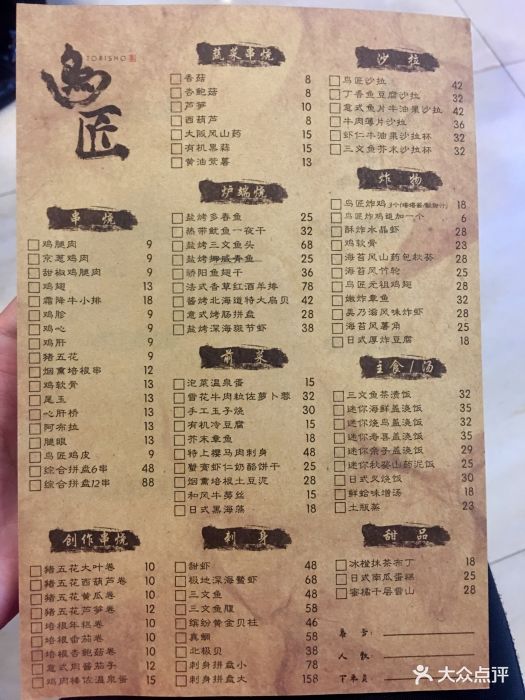 鸟匠
TORISHO
蔬菜串烧
香菇 8
杏鲍菇 8
芦笋 10
西葫芦 8
大阪风山药 15
有机黑菇 15
黄油紫薯 13
沙拉
鸟匠沙拉 42
丁香鱼豆腐沙拉 32
意式鱼片牛油果沙拉 42
牛肉薄片沙拉 36
虾仁牛油果沙拉杯 32
三文鱼芥末沙拉杯 32
串烧
鸡腿肉 9
京葱鸡肉 9
甜椒鸡腿肉 9
鸡翅 13
霜降牛小排 18
鸡胗 9
鸡心 9
鸡肝 9
猪五花 9
烟熏培根串 12
鸡软骨 13
尾玉 13
心肝桥 13
阿布拉 13
腿眼 13
鸟匠鸡皮 9
综合拼盘6串 48
综合拼盘12串 88
炉端烧
盐烤多春鱼 25
热带鱿鱼一夜干 32
盐烤三文鱼头 68
盐烤挪威青鱼 25
骄阳鱼翅干 36
法式香草红酒羊排 78
酱烤北海道特大扇贝 38
意式烤肠拼盘 28
盐烤深海斑节虾 38
炸物
鸟匠炸鸡 18
鸟匠炸鸡追加一个 6
酥炸水晶虾 28
鸡软骨 23
海苔风山药包秋葵 28
海苔风竹轮 25
鸟匠元祖鸡翅 28
嫩炸章鱼 28
美乃滋风味炸虾 28
海苔风薯角 25
日式厚炸豆腐 18
前菜
泡菜温泉蛋 15
雪花牛肉粒佐萝卜蓉 32
手工玉子烧 30
有机冷豆腐 15
芥末章鱼 15
特上樱马肉刺身 48
蟹膏虾仁奶酪饼干 25
烟熏培根土豆泥 28
和风牛蒡丝 15
日式黑海藻 18
主食/汤
三文鱼茶渍饭 32
迷你海鲜盖浇饭 35
迷你烧鸟盖浇饭 35
迷你寿喜盖浇饭 35
迷你亲子盖浇饭 29
迷你秋葵山药泥饭 25
日式火烧饭 28
鲜蛤味增汤 18
土瓶蒸 23
创作串烧
猪五花大叶卷 10
猪五花西葫芦卷 10
猪五花黄瓜卷 10
猪五花芦笋卷 12
培根年糕卷 10
培根番茄卷 10
培根杏鲍菇卷 10
意式肉酱茄子 12
鸡肉棒佐温泉蛋 15
刺身
甜虾 48
极地深海鳌虾 68
三文鱼 48
三文鱼腹 58
缤纷黄金贝柱 46
真鲷 58
北极贝 38
刺身拼盘小 78
刺身拼盘大 158
甜品
冰橙抹茶布丁 18
日式南瓜蛋糕 25
蜜橘千层雪山 28
桌号:
人数:
下单员
大众点评